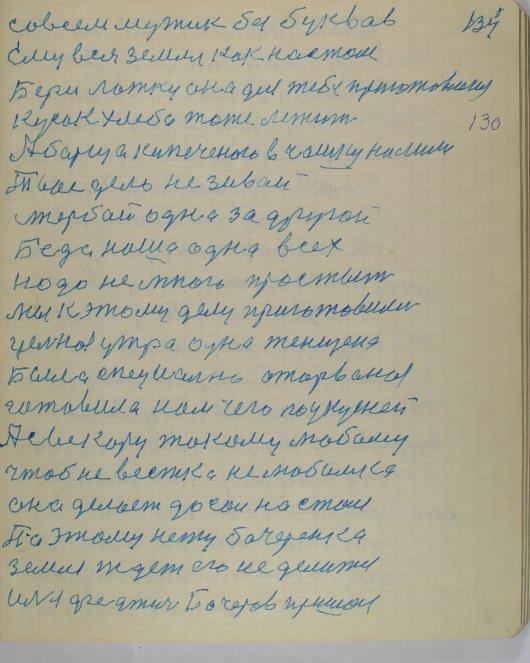 134
130
совсем мужик ба буквав
Ему вся земля как настоле
Бери ложку она для тебя приготовлена
Кусок хлеба тоже лежит
А борща кипеченого в чашку налили
Твае дель не зивай
жербай одна за другой
Беда наша одна всех
надо немного простыт
мы к этому делу приготовили
целноя утра одна женщена
Балла специално оторваноя
готовила нам чего
А свекору такому любому
чтоб не вестка не любимка
она делает настол
По этому нету бачеренка
Земля ждет его не
Бочеров пришол